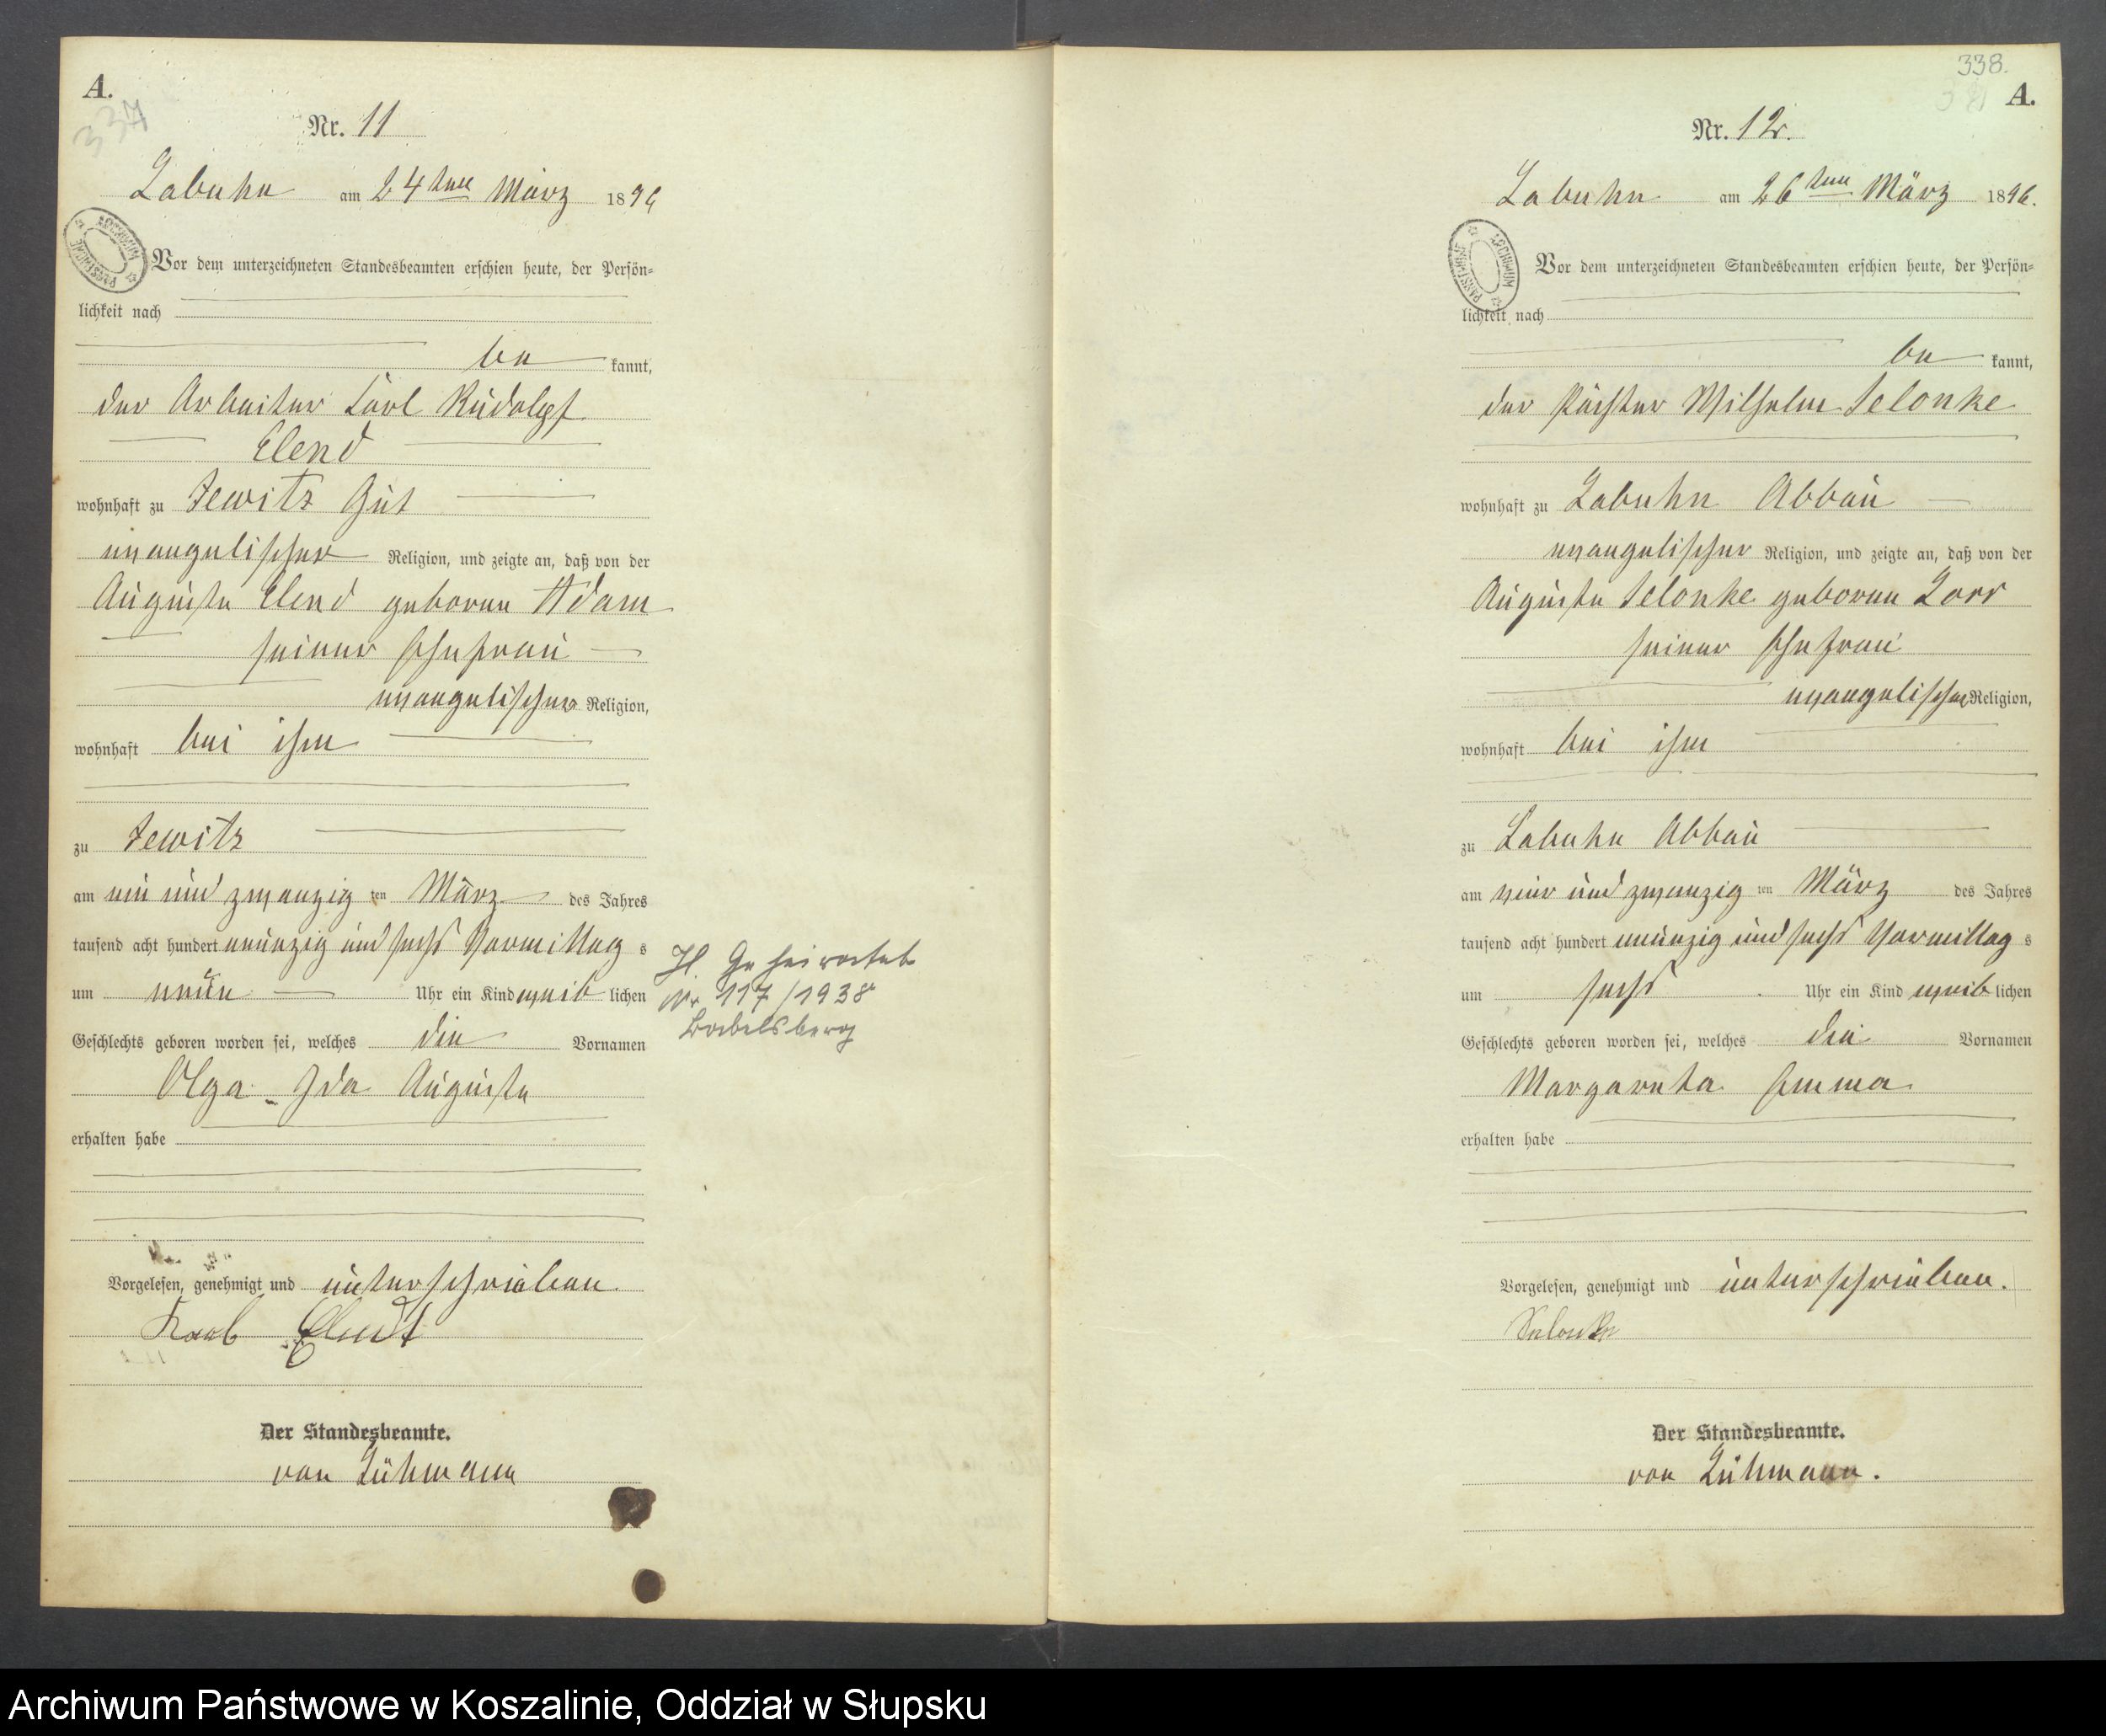 A.
337
Nr. 11
Labuhn am 24ten März 1896
Vor dem unterzeichneten Standesbeamten erschien heute, der Persön=
lichkeit nach
be kannt,
der Arbeiter Carl Rudolpf
Elend
wohnhaft zu Jewitz Gut
evangelischer Religion, und zeigte an, daß von der
Auguste Elend geboren Adam
seiner Ehefrau
evangelischer Religion,
wohnhaft bei ihm
zu Jewitz
am ein und zwanzig ten März des Jahres
tausend acht hundert neunzig und sechs Vormittag s
um neun Uhr ein Kind weib lichen
Geschlechts geboren worden sei, welches die Vornamen
Olga - Ida Auguste
erhalten habe
Vorgelesen, genehmigt und unterschrieben
Elendt
Der Standesbeamte.
von Lühmann
Geheiratet
Nr 117/1938
Babelsberg
338.
A.
Nr. 12.
Labuhn am 26ten März 1896.
ARCHIWUM PAŃSTWOWE
Vor dem unterzeichneten Standesbeamten erschien heute, der Persön=
lichkeit nach
be kannt,
der Pächter Wilhelm Selonke
wohnhaft zu Labuhn Abbau
evangelischer Religion, und zeigte an, daß von der
Auguste Selonke geboren Lorr
seiner Ehefrau
evangelischer Religion,
wohnhaft bei ihm
zu Labuhn Abbau
am vier und zwanzig ten März des Jahres
tausend acht hundert neunzig und sechs Vormittag s
um sechs Uhr ein Kind weib lichen
Geschlechts geboren worden sei, welches die Vornamen
Margareta Emma
erhalten habe
Vorgelesen, genehmigt und unterschrieben.
Selonke
Der Standesbeamte.
von Lühmann.
Archiwum Państwowe w Koszalinie, Oddział w Słupsku